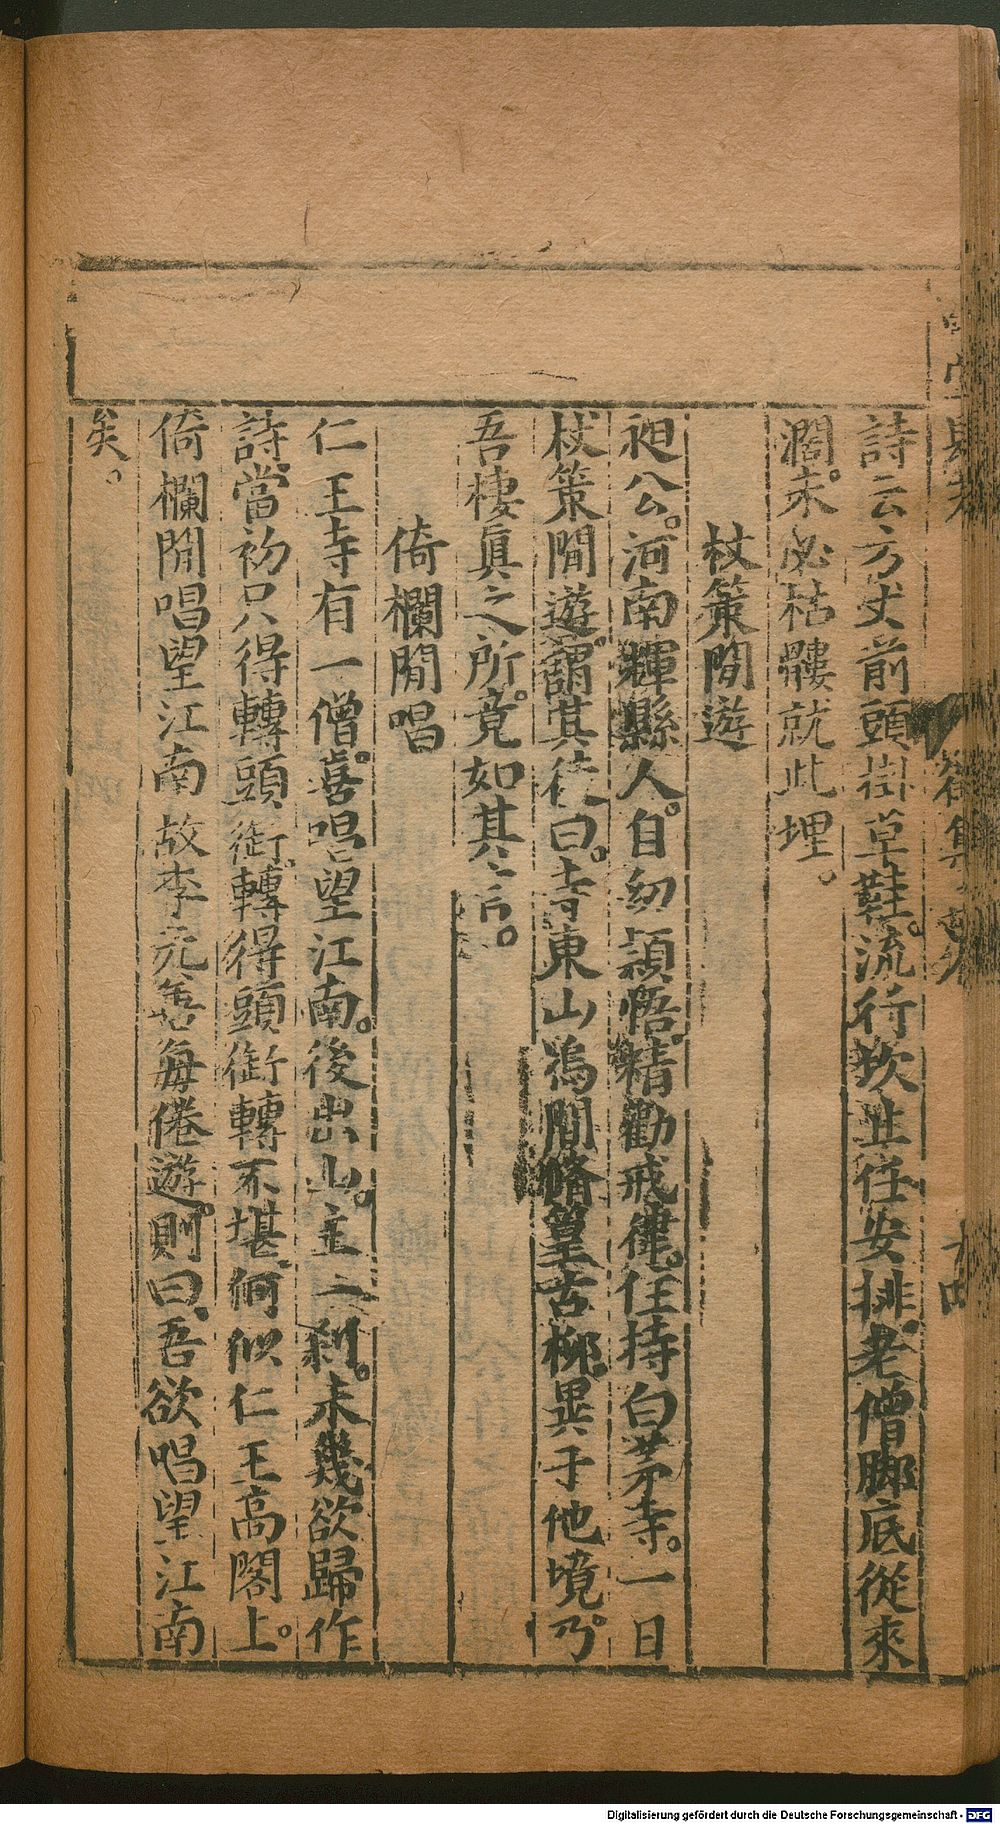 詩云方丈前頭掛草鞋。流行坎止任安排。老僧脚底從來
濶。未必枯髏就此埋。
杖策閒遊
昶公。河南輝縣人。自幼頴悟。精勸戒律。住持白茅寺。一日
杖策閒遊。謂其徒曰。寺東山澗間脩篁古柳。異于他境。乃
吾棲眞之所。竟如其言。
倚欄閒唱
仁王寺有一僧。喜唱望江南。後出山。主二刹。未幾欲歸作
詩。當初只得轉頭銜。轉得頭銜轉不堪。何似仁王高閣上。
倚欄閒唱望江南故李元善每倦遊。則曰。吾欲唱望江南
矣。
Digitalisierung gefördert durch die Deutsche Forschungsgemeinschaft - DFG